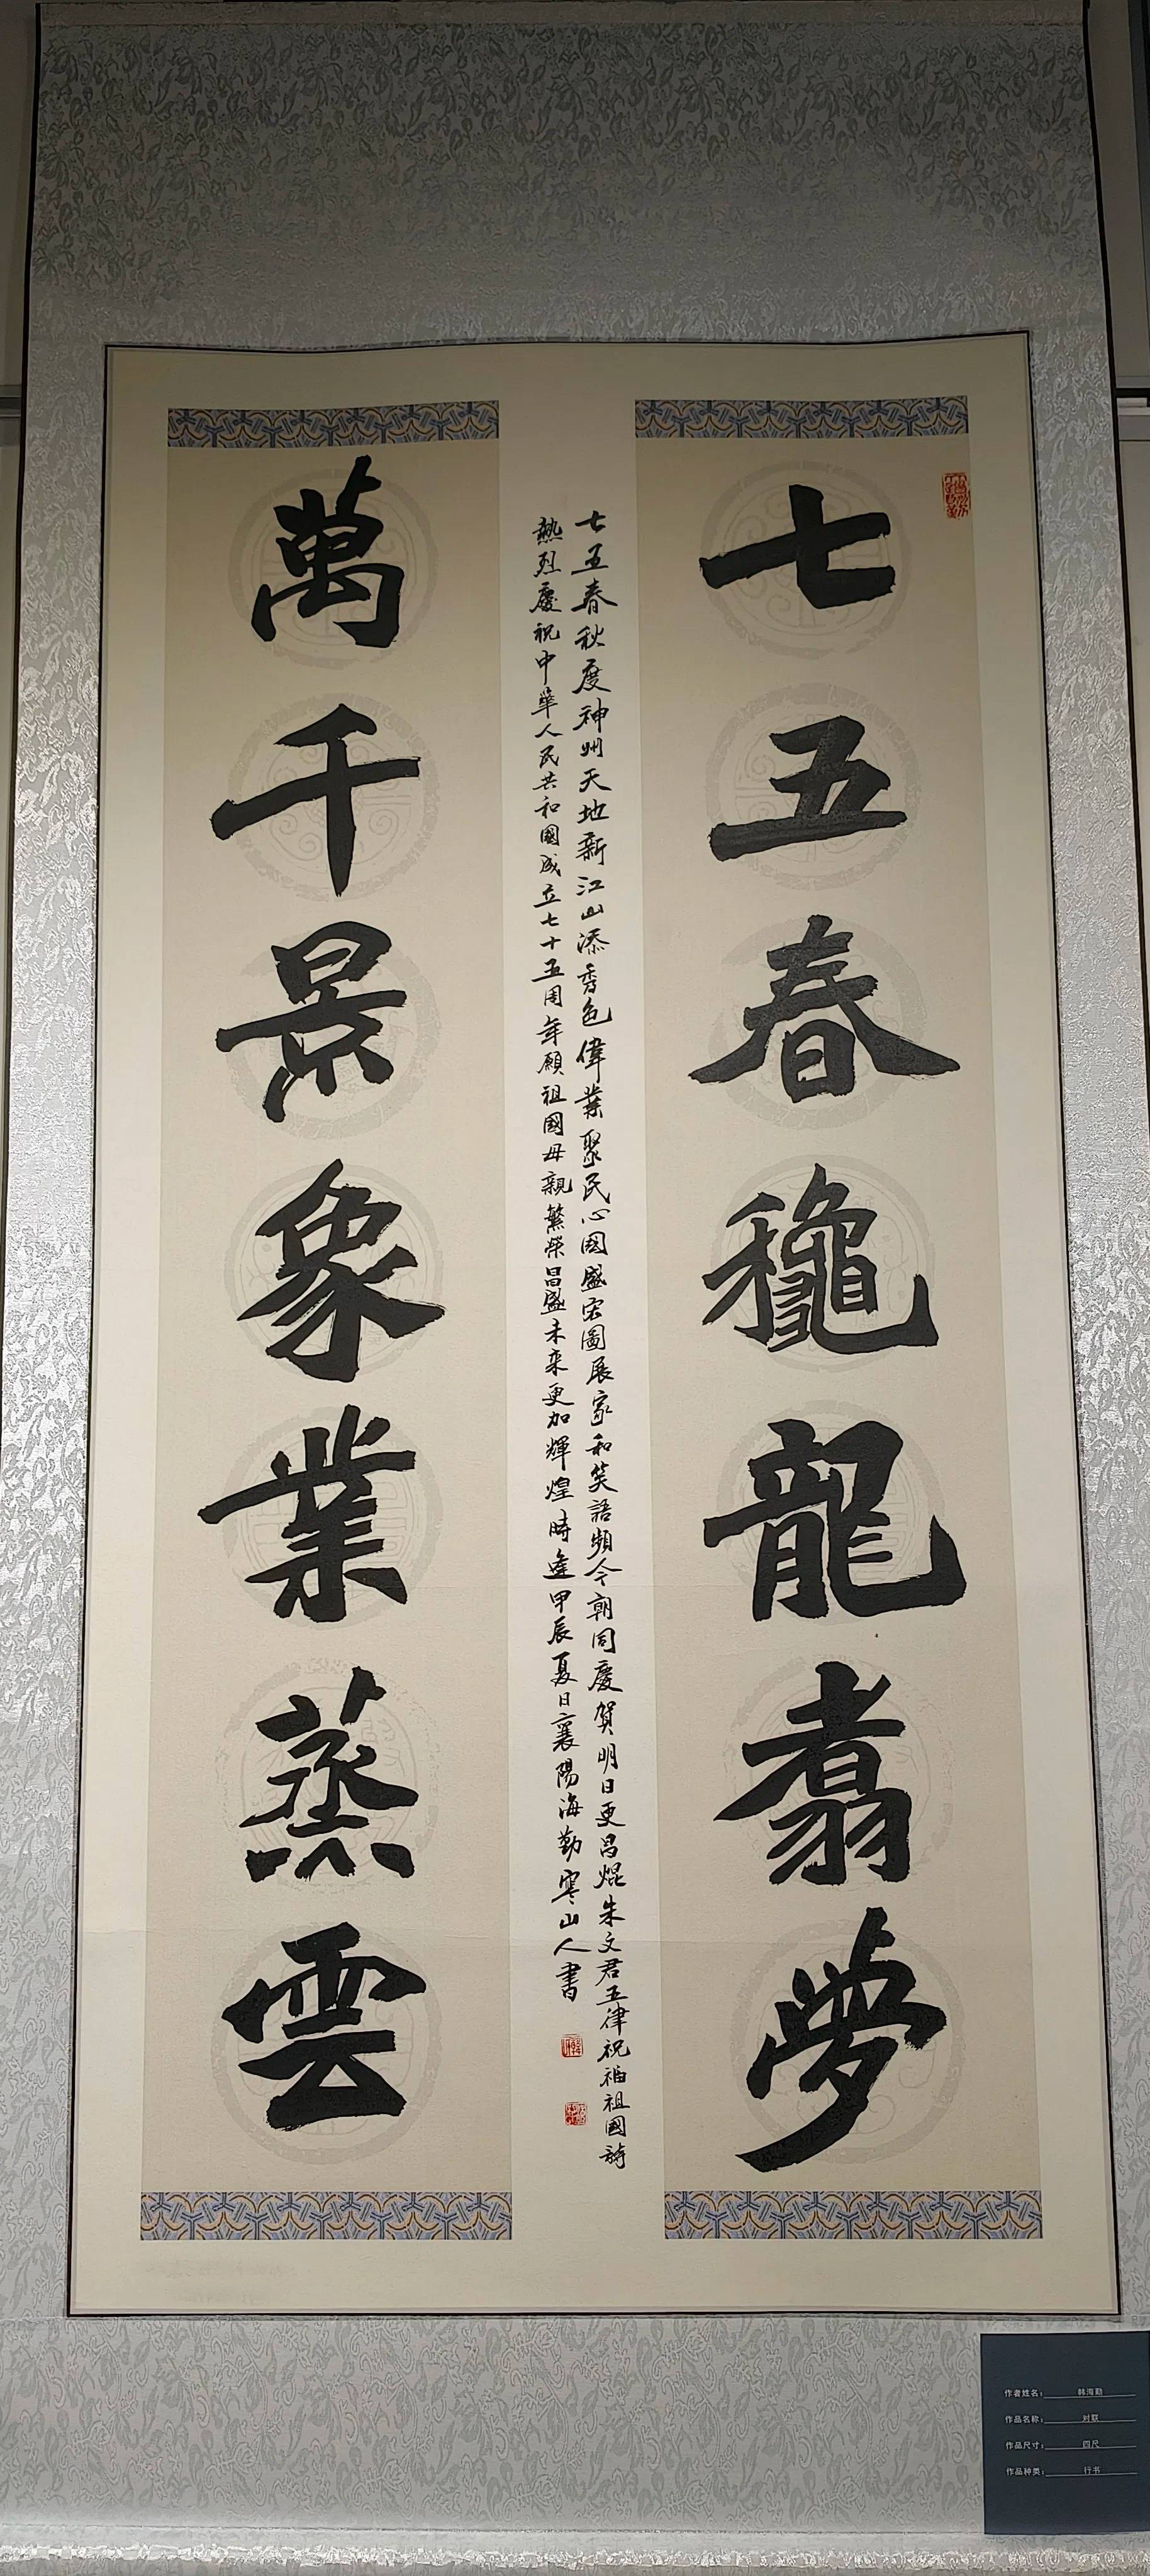 七五春龝龍翥夢
七五春秋度神州天地新江山添秀色偉業聚民心國盛宏圖展家和笑語頻今朝同慶賀明日更昌焜朱文君五律祝福祖國詩
熱烈慶祝中華人民共和國成立七十五周年願祖國母親繁榮昌盛未来更加輝煌時逢甲辰夏日襄陽海勤寒山人書
萬千景象業蒸雲
作者姓名：韩海勤
作品名称：对联
作品尺寸：四尺
作品种类：行书